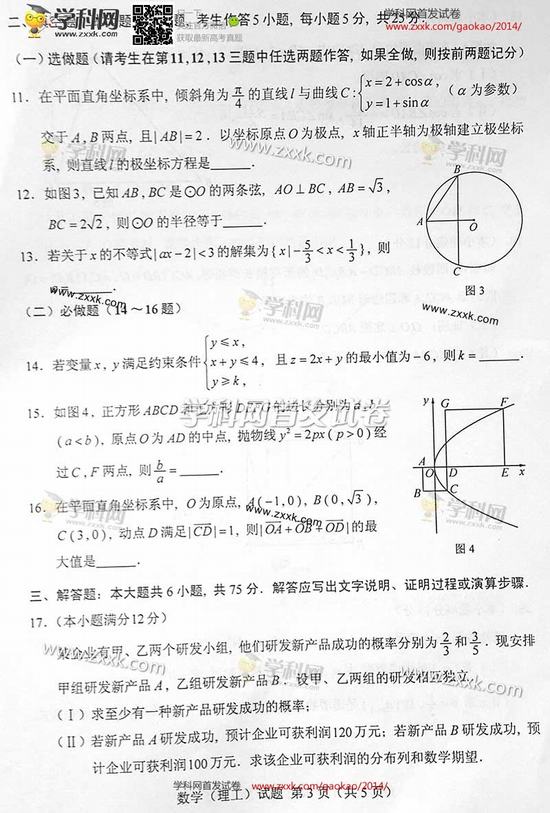 学科网首发试卷
www.zxxk.com/gaokao/2014/
获取最新高考真题
学科网 www.zxxk.com
考生作答5小题,每小题5分,共25分.
(一)选做题(请考生在第11,12,13三题中任选两题作答,如果全做,则按前两题记分)
11.在平面直角坐标系中,倾斜角为π/4的直线l与曲线C:{x=2+cosα, y=1+sinα},(α为参数)
交于A,B两点,且|AB|=2.以坐标原点O为极点,x轴正半轴为极轴建立极坐标
系,则直线l的极坐标方程是______.
12.如图3,已知AB,BC是⊙O的两条弦,AO⊥BC,AB=√3,
BC=2√2,则⊙O的半径等于______.
13.若关于x的不等式|ax-2|<3的解集为{x|-5/3<x<1/3},则
______.
B
A
O
C
图3
(二)必做题(14~16题)
14.若变量x,y满足约束条件{y≤x, x+y≤4, y≥k,}且z=2x+y的最小值为-6,则k=______.
15.如图4,正方形ABCD和正方形DEFG的边长分别为a,b
(a<b),原点O为AD的中点,抛物线y²=2px(p>0)经
过C,F两点,则b/a=______.
y
G
F
A
O
D
E
x
B
C
图4
16.在平面直角坐标系中,O为原点,A(-1,0),B(0,√3),
C(3,0),动点D满足|CD|=1,则|OA+OB+OD|的最
大值是______.
学科网首发试卷
三、解答题:本大题共6小题,共75分.解答应写出文字说明、证明过程或演算步骤.
17.(本小题满分12分)
某企业有甲、乙两个研发小组,他们研发新产品成功的概率分别为2/3和3/5.现安排
甲组研发新产品A,乙组研发新产品B.设甲、乙两组的研发相互独立.
(Ⅰ)求至少有一种新产品研发成功的概率;
(Ⅱ)若新产品A研发成功,预计企业可获利润120万元;若新产品B研发成功,预
计企业可获利润100万元.求该企业可获利润的分布列和数学期望.
学科网首发试卷
www.zxxk.com/gaokao/2014/
数学(理工)试题 第3页(共5页)